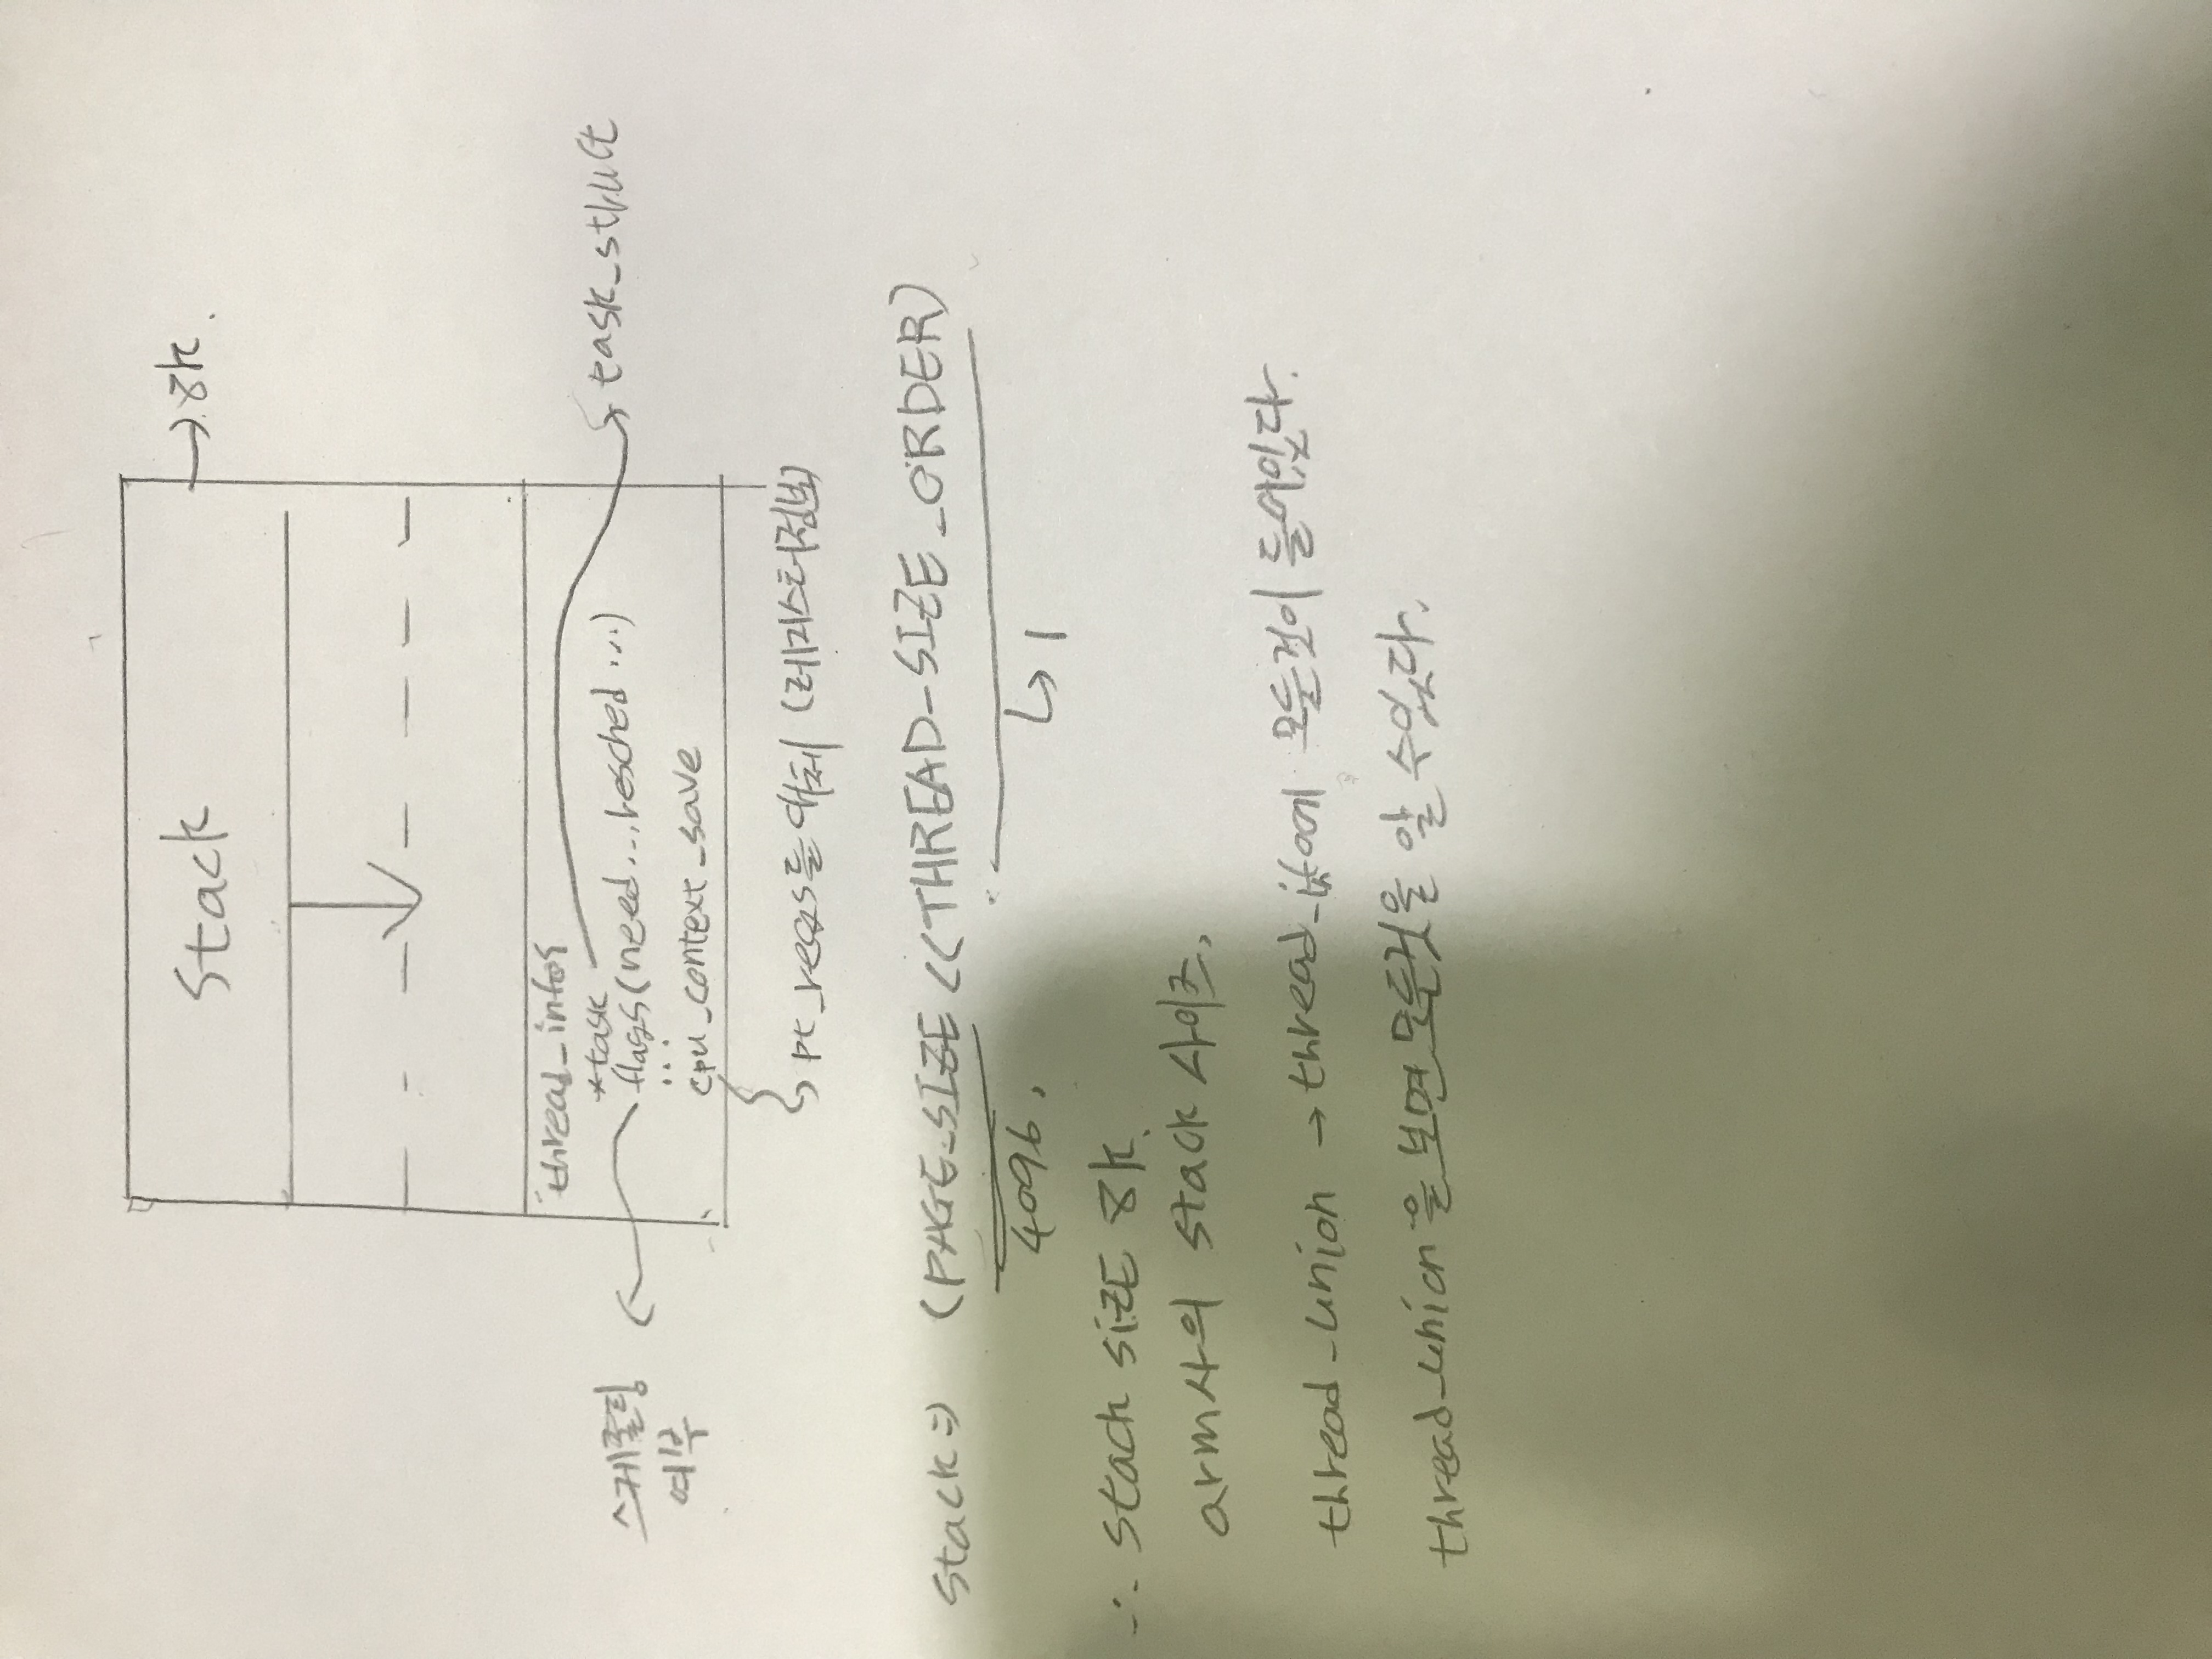 Stack
→ 8K.
thread_info {
*task
→ task_struct
flags (need..., resched ...)
스케줄링
여부
...
cpu_context_save
pt_regs를 대체 (레지스터정보)
stack ⇒ (PAGE_SIZE << THREAD_SIZE_ORDER)
4096.
↳ 1
∴ stack sizE 8K.
arm사의 stack 사이즈.
thread_union → thread_info에 모든것이 들어있다.
thread_union을 보면 모든것을 알 수있다.